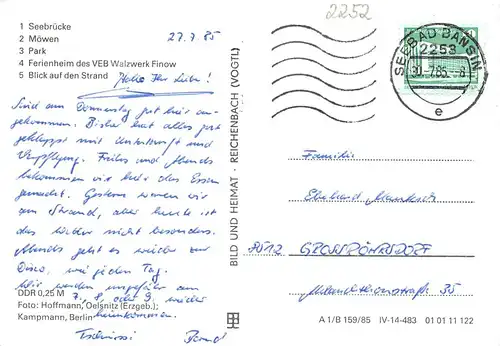 2252
1 Seebrücke
2 Möwen
3 Park
4 Ferienheim des VEB Walzwerk Finow
5 Blick auf den Strand
27.7.85
Hallo Ihr Lieben!
Sind am Donnerstag gut hier an-
gekommen. Bisher hat alles gut
geklappt mit Unterkunft und
Verpflegung. Früh und Abends
bekommen wir hier das Essen
gemacht. Gestern waren wir
am Strand, aber heute ist
das Wetter nicht besonders.
Abends geht es wieder zur
Disco, wie jeden Tag.
Wir werden ungefähr am
7., 8., oder 9. wieder
heimkommen.
Tschüssi Bernd
DDR 0,25 M
Foto: Hoffmann, Oelsnitz (Erzgeb.);
Kampmann, Berlin
BILD UND HEIMAT · REICHENBACH (VOGTL)
SEEBAD BANSIN
2253
30.7.85.-8
e
Familie
Eberhard
8512 GROSSRÖHRSDORF
Melanchthonstraße 35
A 1/B 159/85 IV-14-483 01 01 11 122